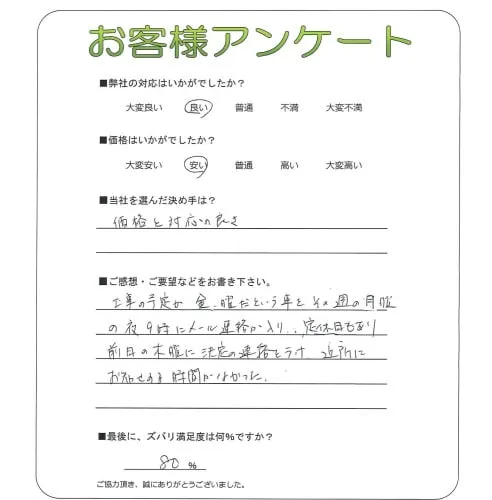 お客様アンケート
■弊社の対応はいかがでしたか?
大変良い 良い 普通 不満 大変不満
■価格はいかがでしたか?
大変安い 安い 普通 高い 大変高い
■当社を選んだ決め手は?
価格と対応の良さ
■ご感想・ご要望などをお書き下さい。
工事の予定が 金.曜だという事を その週の月曜
の夜9時にメール連絡が入り、定休日もあり
前日の木曜に決定の連絡をうけ 近所に
お知らせする時間がなかった.
■最後に、ズバリ満足度は何%ですか?
80 %
ご協力頂き、誠にありがとうございました。